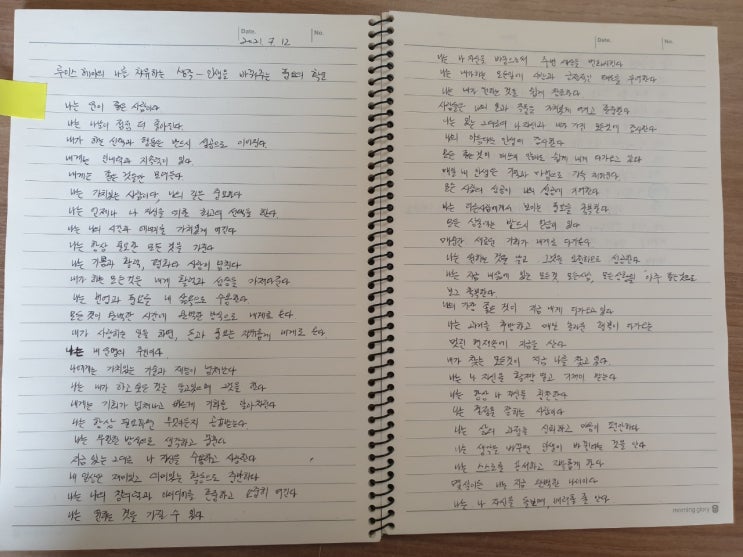 Date. No.
2021. 7. 12
루이스 헤이의 나를 치유하는 생각 - 인생을 바꿔주는 풍요의 확언
나는 운이 좋은 사람이다
나는 나날이 점점 더 좋아진다.
내가 하는 선택과 행동은 반드시 성공으로 이어진다.
내게는 인내력과 지속력이 있다.
내게는 좋은 것들만 모여든다.
나는 가치있는 사람이다, 나의 길은 중요하다
나는 언제나 나 자신을 위해 최고의 선택을 한다.
나는 나의 시간과 에너지를 가치있게 여긴다
나는 항상 필요한 모든 것을 가진다
나는 기쁨과 활력, 평화와 사랑이 넘친다
내가 하는 모든 것은 내게 확언과 성공을 가져다준다
나는 번영과 풍요를 내 삶으로 수용한다.
모든 것이 완벽한 시간에 완벽한 방식으로 내게로 온다.
내가 사랑하는 일을 하면, 돈과 풍요는 자연스럽게 내게로 온다.
나는 내 운명의 주인이다.
나에게는 가치있는 기술과 재능이 넘쳐난다
나는 내가 하고 싶은 것을 알고있으며 그것을 한다
내게는 기회가 넘쳐나고 빠르게 기회를 알아차린다
나는 항상 필요하면 무엇이든지 공급받는다.
나는 무한한 방식으로 생각하고 꿈꾼다.
지금 있는 그대로 나 자신을 수용하고 사랑한다
내 일상은 재미있고 의미있는 활동으로 충만하다
나는 나의 창의력과 아이디어를 존중하고 소중히 여긴다
나는 원하는 것을 가질 수 있다
Date. No.
나는 나 자신을 바꿈으로써 주변 사람을 변화시킨다
나는 내가하는 모든일에 사랑과 긍정적인 태도를 부여한다
나는 내가 원하는 것을 쉽게 창조한다
사람들은 나의 일과 능력을 가치있게 여기고 존중한다
나는 있는 그대로의 나 자신과 내가 가진 모든것에 감사한다
나의 아름다운 인생에 감사한다
모든 좋은것이 매순간 안전하고 쉽게 내게 다가오고 있다
매일 내 인생은 기쁨과 사랑으로 가득 채워진다.
모든 사람의 성공이 나의 성공에 기여한다
나는 다른사람에게서 보이는 풍요를 축복한다.
모든 상황에는 반드시 은혜이 있다
매순간 새로운 기회가 내게로 다가온다
나는 원하는 것을 알고 그것을 요청하므로 실현한다
나는 지금 내삶에 있는 모든것 모든사람, 모든상황을 아주 좋은것으로
보고 축복한다.
나의 가장 좋은 것이 지금 내게 다가오고 있다
나는 고마움을 충만하고 매일 놀라운 행복이 다가오는
멋진 현재에 지금을 산다
내가 찾는 모든것이 지금 나를 찾고 있다.
나는 나 자신을 활짝 열고 기꺼이 받는다
나는 항상 나 자신을 칭찬한다
나는 결정을 잘하는 사람이다
나는 삶의 과정을 신뢰하고 마음이 편안하다
나는 생각을 바꾸면 인생이 바뀐다는 것을 안다
나는 스스로를 용서하고 자유롭게 한다
몇살이든 나는 지금 완벽한 나이이다
나는 나 자신을 돌보며, 배려할 줄 안다
morning glory